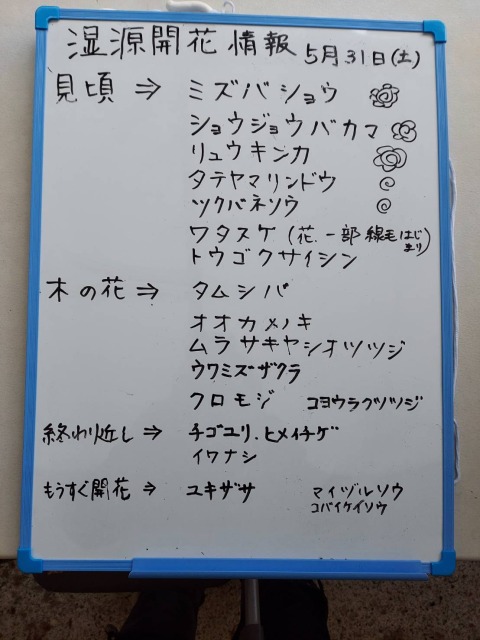 湿源開花情報 5月31日(土)
見頃 ⇒ ミズバショウ
ショウジョウバカマ
リュウキンカ
タテヤマリンドウ
ツクバネソウ
ワタスゲ (花、一部綿毛はじまり)
トウゴクサイシン
木の花 ⇒ タムシバ
オオカメノキ
ムラサキヤシオツツジ
ウワミズザクラ
クロモジ コヨウラクツツジ
終わり近し ⇒ チゴユリ、ヒメイチゲ
イワナシ
もうすぐ開花 ⇒ ユキザサ マイヅルソウ
コバイケイソウ